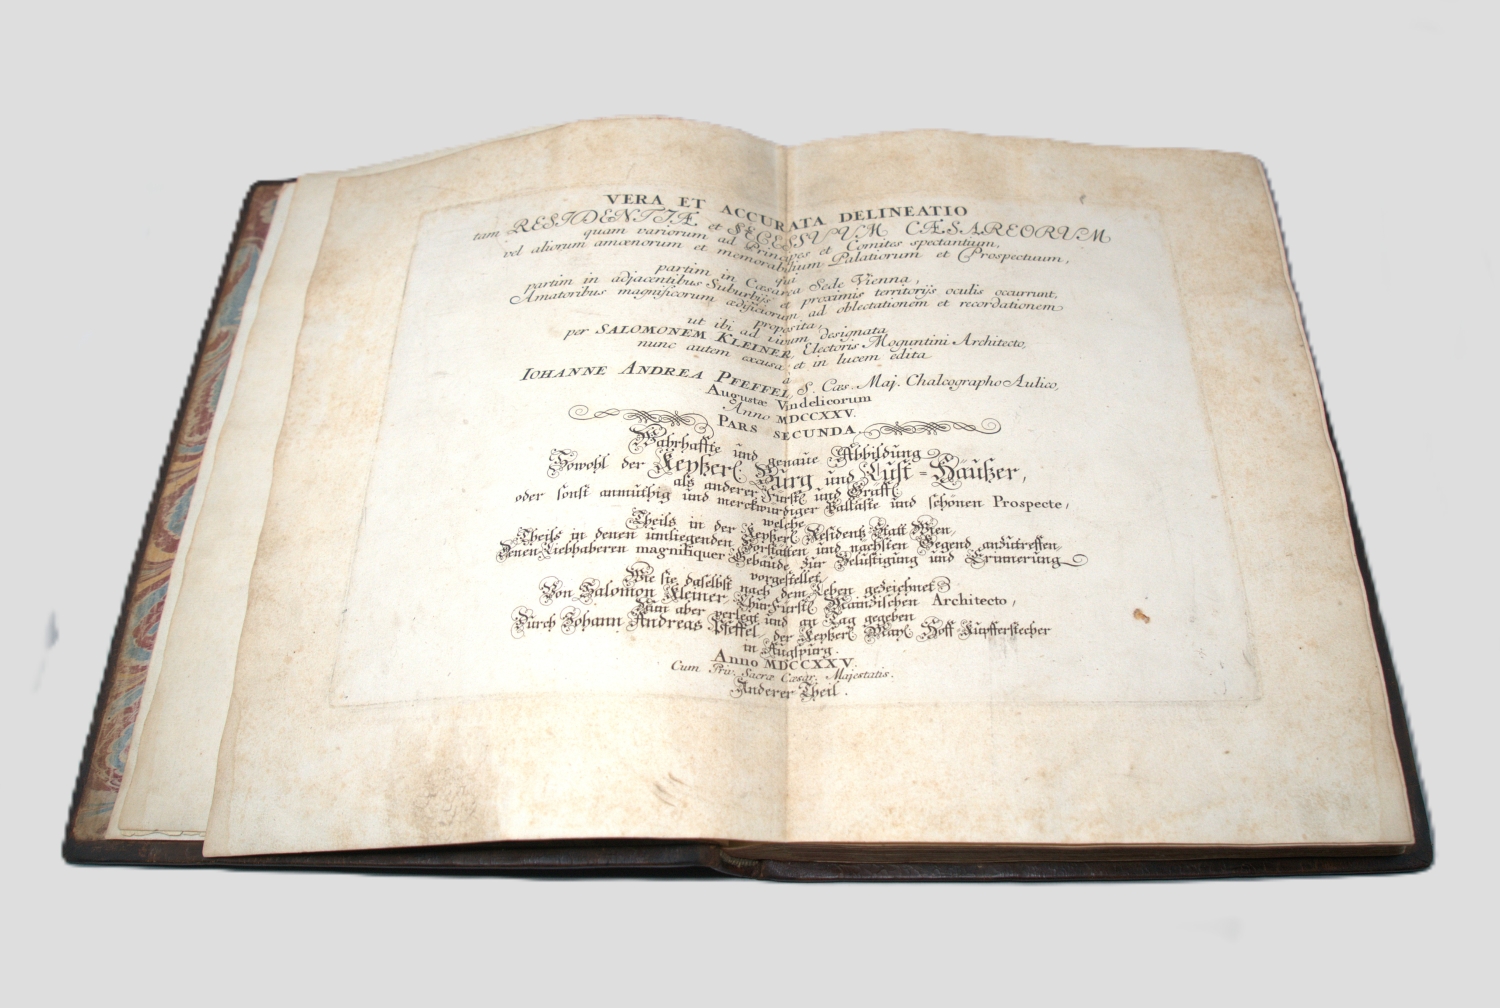 VERA ET ACCURATA DELINEATIO
tam RESIDENTIÆ et SECESSUUM CÆSAREORUM
quam variorum ad Principes et Comites spectantium,
vel aliorum amœnorum et memorabilium Palatiorum et Prospectuum,
qui
partim in Cæsarea Sede Vienna,
partim in adjacentibus Suburbijs et proximis territorijs oculis occurrunt,
Amatoribus magnificorum ædificiorum ad oblectationem et recordationem
proposita,
ut ibi ad vivum designata
per SALOMONEM KLEINER, Electoris Moguntini Architecto,
nunc autem excusa et in lucem edita
a
IOHANNE ANDREA PFEFFEL, S. Cæs. Maj. Chalcographo Aulico,
Augustæ Vindelicorum
Anno MDCCXXV.
PARS SECUNDA
Wahrhaffte und genaue Abbildung
Sowohl der Keyßerl. Burg und Lust-Haußer,
als anderer Fürstl. und Gräffl.
oder sonst anmuthig und merckwürdiger Palläste und schönen Prospecte,
welche
Theils in der Keyßerl. Residentz Statt Wien,
Theils in denen umliegenden Vorstätten und nächsten Gegend anzutreffen,
Denen Liebhaberen magnifiquer Gebäude zür Belüstigung und Erinnerung
vorgestellet,
Wie sie daselbst nach dem Leben gezeichnet
Von Salomon Kleiner, Chur Fürstl. Maintzischen Architecto,
Nun aber verlegt und an Tag gegeben
Durch Johann Andreas Pfeffel, der Keyßerl. May. Hoff Kupfferstecher
in Augspurg.
Anno MDCCXXV.
Cum Priv. Sacræ Cæsar. Majestatis.
Anderer Theil.